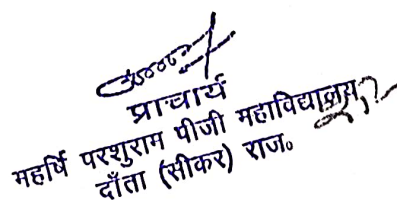 प्राचार्य
महर्षि परशुराम पीजी महाविद्यालय
दाँता (सीकर) राज॰